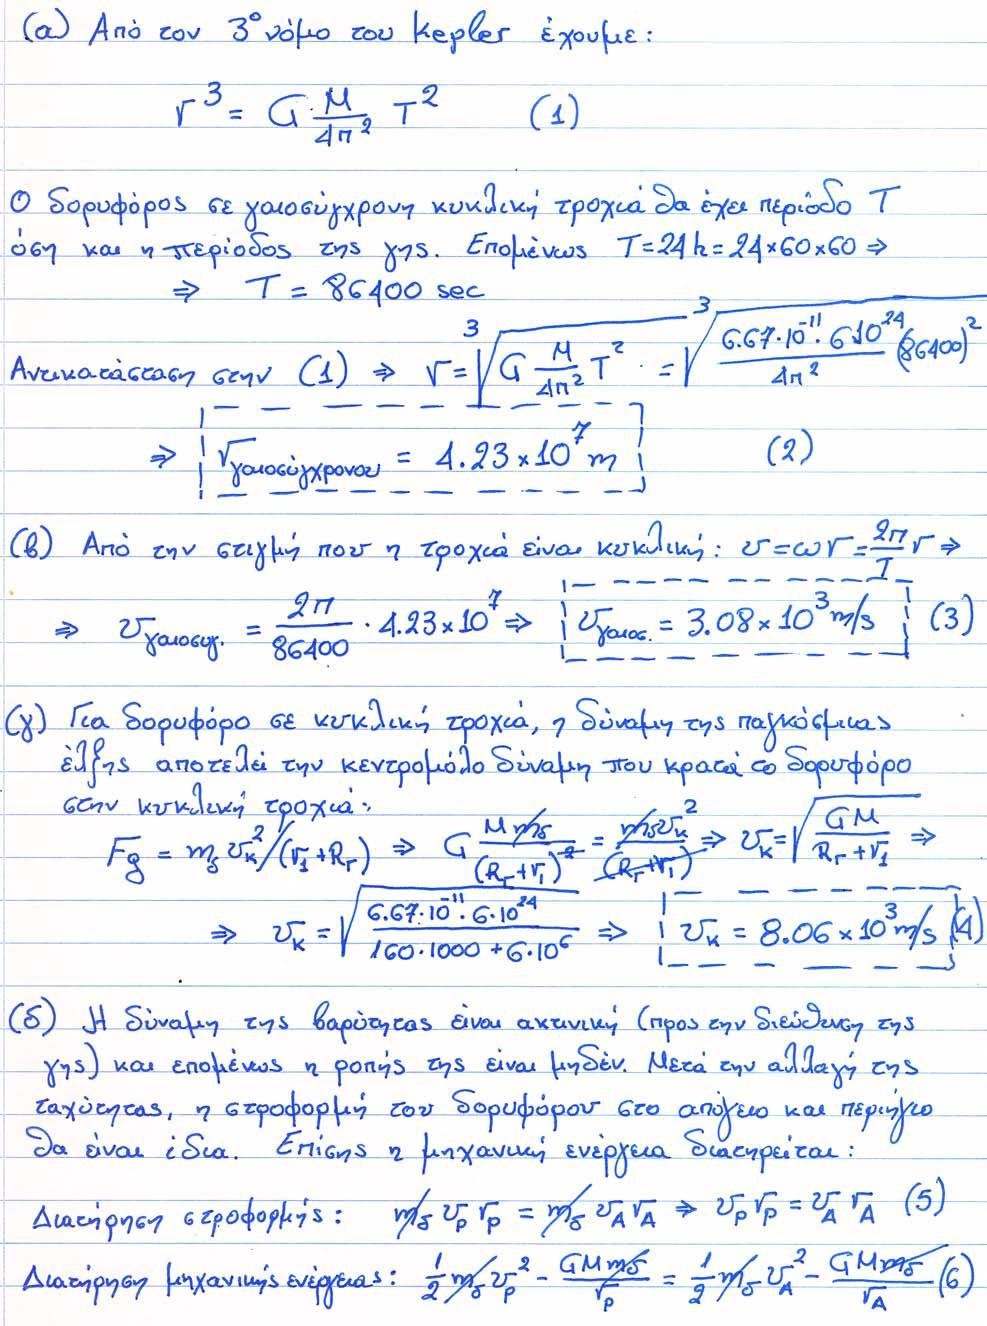 (α) Από τον 3º νόμο του Kepler έχουμε:
r³ = G M/4π² T² (1)
Ο δορυφόρος σε γαιοσύγχρονη κυκλική τροχιά θα έχει περίοδο T
όση και η περίοδος της γης. Επομένως T=24h=24×60×60 ⇒
⇒ T = 86400 sec
Αντικατάσταση στην (1) ⇒ r = ∛(G M/4π² T²) = ∛(6.67·10⁻¹¹·6·10²⁴/4π² (86400)²)
⇒ r_γαιοσύγχρονου = 4.23×10⁷ m (2)
(β) Από την στιγμή που η τροχιά είναι κυκλική: υ=ωr=2π/T r ⇒
⇒ υ_γαιοσυγ. = 2π/86400 · 4.23×10⁷ ⇒ υ_γαιοσ. = 3.08×10³ m/s (3)
(γ) Για δορυφόρο σε κυκλική τροχιά, η δύναμη της παγκόσμιας
έλξης αποτελεί την κεντρομόλο δύναμη που κρατά το δορυφόρο
στην κυκλική τροχιά:
F_g = m_δ υ_κ²/(r₁+R_Γ) ⇒ G M m_δ/(R_Γ+r₁)² = m_δ υ_κ²/(R_Γ+r₁) ⇒ υ_κ = √(GM/(R_Γ+r₁)) ⇒
⇒ υ_κ = √(6.67·10⁻¹¹·6·10²⁴/(160·1000+6·10⁶)) ⇒ υ_κ = 8.06×10³ m/s (4)
(δ) Η δύναμη της βαρύτητας είναι ακτινική (προς την διεύθυνση της
γης) και επομένως η ροπής της είναι μηδέν. Μετά την αλλαγή της
ταχύτητας, η στροφορμή του δορυφόρου στο απόγειο και περιήγιο
θα είναι ίδια. Επίσης η μηχανική ενέργεια διατηρείται:
Διατήρηση στροφορμής: m_δ υ_P r_P = m_δ υ_A r_A ⇒ υ_P r_P = υ_A r_A (5)
Διατήρηση μηχανικής ενέργειας: 1/2 m_δ υ_P² - GMm_δ/r_P = 1/2 m_δ υ_A² - GMm_δ/r_A (6)